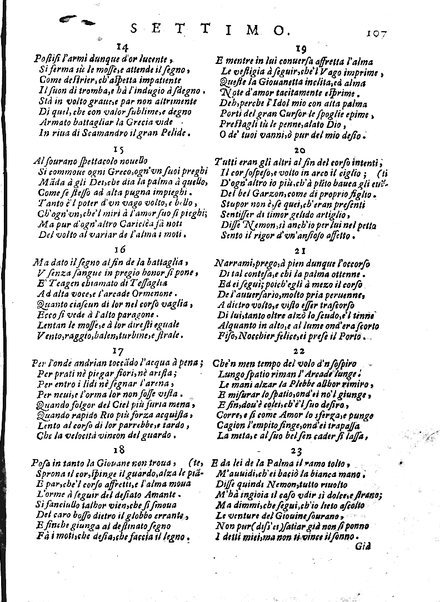 SETTIMO. 107
14
Postisi l'armi dunque d'or lucente,
Si ferma iù le mosse, e attende il segno,
Come destrier, ch'aspetta impatiente
Il suon di tromba, e hà l'indugio à sdegno.
Stà in volto graue, e par non altrimente
Di quel, che con valor sublime, e degno
Armato battagliar la Grecia vide
In riua di Scamandro il gran Pelide.
15
Al sourano spettacolo nouello
Si commoue ogni Greco, ogn'vn suoi preghi
Māda à gli Dei, che dia la palma à quello,
Come se stesso ad alta pugna impieghi.
Tanto è'l poter d'vn vago volto, e bello,
Ch'ogn'vn, che'l miri à l'amor suo si pieghi;
Ma pur d'ogn'altro Cariclea fà noti
Del volto al variar de l'alma i moti.
16
Ma dato il segno al fin de la battaglia,
V senza sangue in pregio honor si pone,
E Teagen chiamato di Tessaglia
Ad alta voce, e l'arcade Ormenone.
Quanto ciascun di lor nel corso vaglia,
Ecco si vede à l'alto paragone.
Lentan le mosse, e à lor diresti eguale
Vento, raggio, balen, turbine, e strale.
17
Per l'onde andrian toccādo l'acqua à pena;
Per prati nè piegar fiori, nè arista;
Per entro i lidi nè segnar l'arena,
Per neui, e l'orma lor non fosse vista.
Quando folgor del Ciel più furia mena,
Quando rapido Rio più forza acquista,
Lento al corso di lor parrebbe, e tardo,
Che la velocità vincon del guardo.
18
Posa in tanto la Giouane non troua, (te,
Sprona il cor, spinge il guardo, alza le piā-
E par, che'l corso affretti, e l'alma moua
L'orme à seguir del desiato Amante.
Si fanciullo talhor vien, che si snoua
Del caro bosso dietro il globbo errante,
E finche giunga al destinato segno
Fà i moti, che desia, che faccia il legno.
19
E mentre in lui conuersa affretta l'alma
Le vestigia à seguir, che'l Vago imprime,
Queste la Giouanetta inclita, ed alma
Note d'amor tacitamente esprime.
Deh, perche l'Idol mio con alta palma
Porti del gran Cursor le spoglie opime,
Prestagli tù le penne, alato Dio,
O de' tuoi vanni, ò pur del mio desio.
20
Tutti eran gli altri al fin del corso intenti,
Il cor sospeso, e volto in arco il ciglio;
D'ogn'altro io più, ch'à plito bauea gli
Del bel Garzon, come di proprio figlio.
Stupor non è, se quei, ch'eran presenti
Sentisser di timor gelido artiglio,
Disse Nemon, s'anch'io per lui nel petto
Sento il rigor d'vn'ansioso affetto.
21
Narrami, prego, à pien dunque l'occorso
Di tal contesa, e chi la palma ottenne.
Ed ei seguì; poich'egli à mezo il corso
De l'auuersario, molto pria peruenne,
A dietro volto, e visto esser trascorso
Di lui, tanto oltre alzò lo scudo, e'l tenne
Alquanto in alto, e al lume ond'era sorto
Piso, Nocchier felice, ei prese il Porto.
22
Che'n men tempo del volo d'n sospiro
Lungo spatio riman l'Arcade lunge.
Le mani alzar la Plebbe allhor rimiro,
E misurar lo spatio, ond'ei no'l giunge,
E fin, dou'è colei, ch'è'l suo desiro,
Corre, e sì come Amor lo sferza, e punge
Cagion l'empito finge, ond'ei trapassa
La meta, e al suo bel sen cader si lassa,
23
E da lei de la Palma il ramo tolto,
M'auuidi, ch'ei baciò la bianca mano.
Disse quindi Nemon, tutto riuolto
M'hà ingioia il caso vdir sì dolce, e strano;
Ma dimmi, che seguì, ch'io lieto ascolto
Le venture del Giouine sourano,
Non pur (dis'ei) satiar già non si ponno
I detti miei, ma non ti vince il sonno.
Già